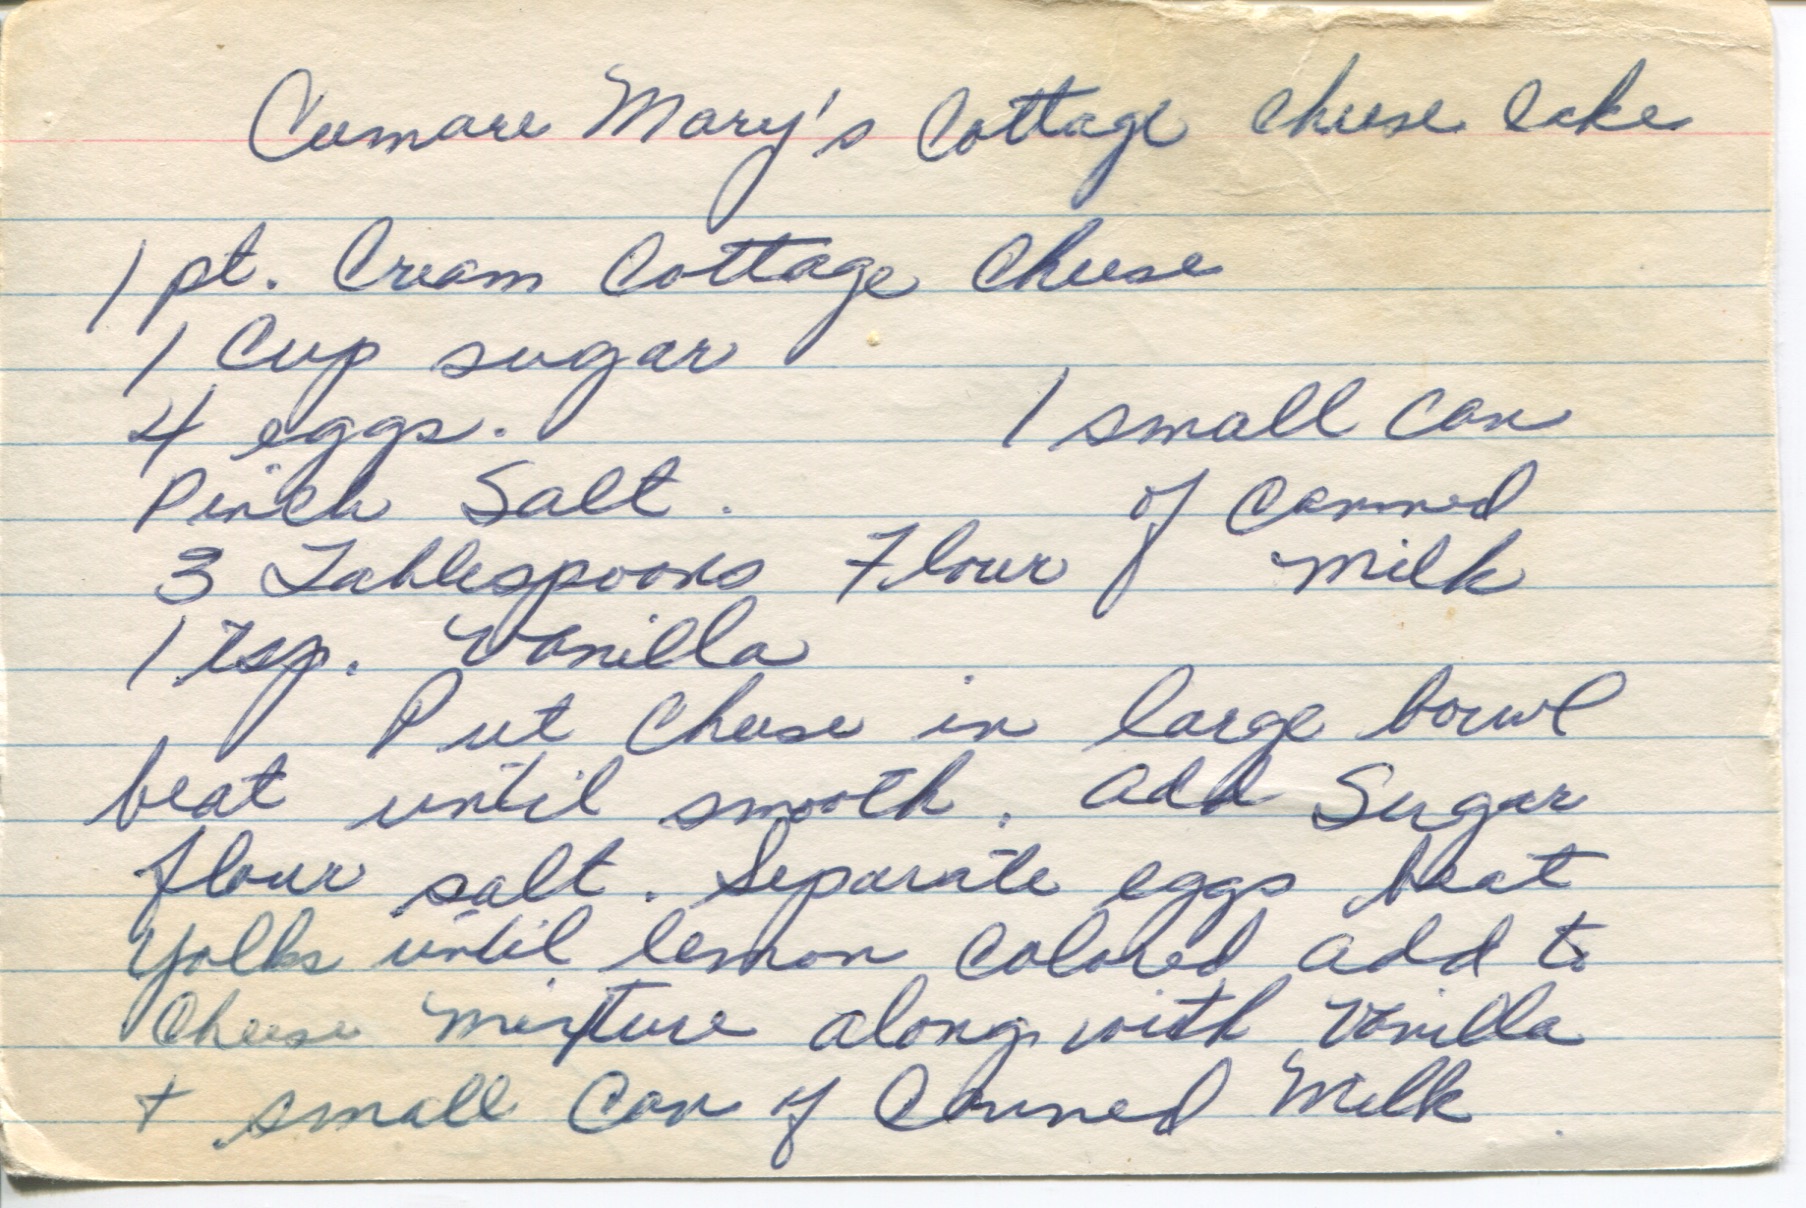 Cumare Mary's Cottage Cheese Cake
1 pt. Cream Cottage Cheese
1 Cup sugar
4 eggs.
1 small can
Pinch Salt.
of Canned
3 Tablespoons Flour
Milk
1 Tsp. Vanilla
Put Cheese in large bowl
beat until smooth. Add Sugar
flour salt. Separate eggs beat
Yolks until lemon colored add to
Cheese mixture along with Vanilla
+ small Can of Canned Milk